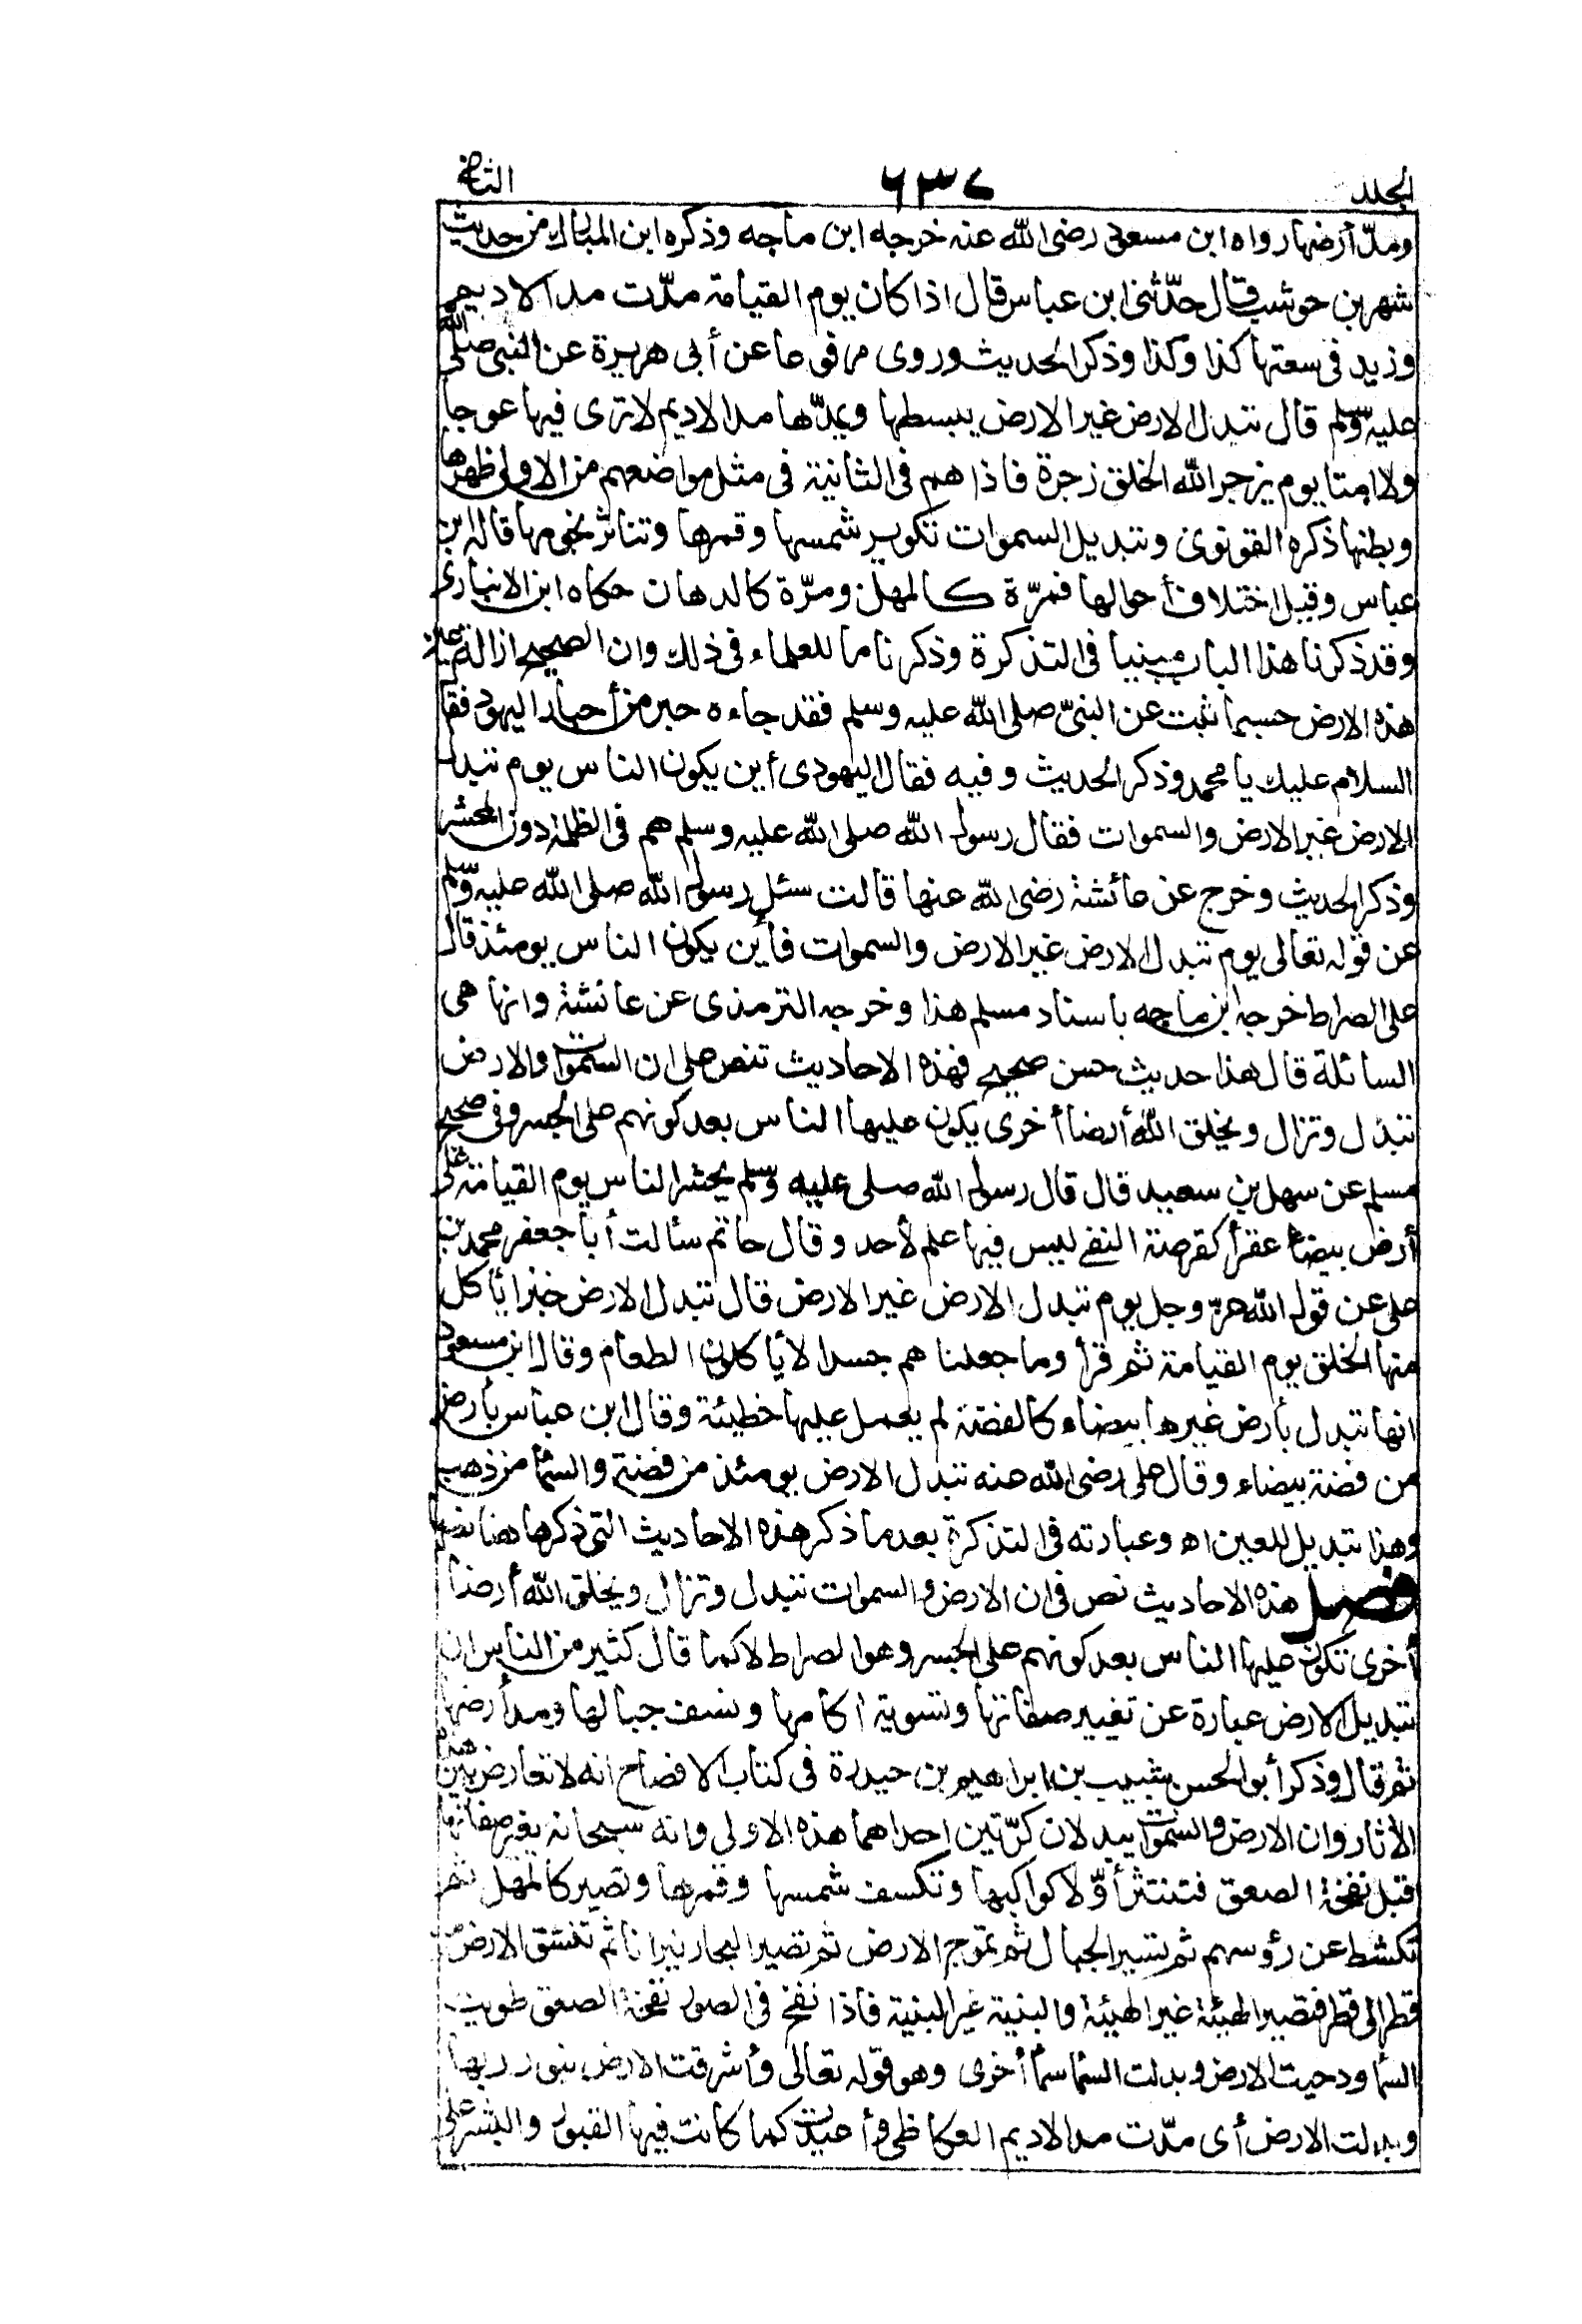 الجلد ٦٣٧ الثانى
ومدّ أرضها رواه ابن مسعود رضى الله عنه خرجه ابن ماجه وذكره ابن المبارك من حديث
شهر بن حوشب قال حدّثنى ابن عباس قال اذا كان يوم القيامة مدّت مد الاديم
وزيد فى سعتها كذا وكذا وذكر الحديث وروى مرفوعا عن أبى هريرة عن النبى صلى الله
عليه وسلم قال تبدل الارض غير الارض يبسطها ويمدّها مد الاديم لا ترى فيها عوجا
ولا امتا يوم يزجر الله الخلق زجرة فاذا هم فى الثانية فى مثل مواضعهم من الاولى ظهرها
وبطنها ذكره القونوى وتبديل السموات تكوير شمسها وقمرها وتناثر نجومها قاله ابن
عباس وقيل اختلاف أحوالها فمرّة كالمهل ومرّة كالدهان حكاه ابن الانبارى
وقد ذكرنا هذا الباب مبينا فى التذكرة وذكرنا ما للعلماء فى ذلك وان الصحيح ازالة عين
هذه الارض حسبما ثبت عن النبىّ صلى الله عليه وسلم فقد جاءه حبر من أحبار اليهود فقا
السلام عليك يا محمد وذكر الحديث وفيه فقال اليهودى أين يكون الناس يوم تبدل
الارض غير الارض والسموات فقال رسول الله صلى الله عليه وسلم هم فى الظلمة دون المحشر
وذكر الحديث وخرج عن عائشة رضى الله عنها قالت سئل رسول الله صلى الله عليه وسلم
عن قوله تعالى يوم تبدل الارض غير الارض والسموات فأين يكون الناس يومئذ قال
على الصراط خرجه ابن ماجه باسناد مسلم هذا وخرجه الترمذى عن عائشة وانها هى
السائلة قال هذا حديث حسن صحيح فهذه الاحاديث تنص على ان السموات والارض
تبدل وتزال ويخلق الله أرضا أخرى يكون عليها الناس بعد كونهم على الجسر وفى صحيح
مسلم عن سهل بن سعيد قال قال رسول الله صلى عليه وسلم يحشر الناس يوم القيامة على
أرض بيضاء عفرأ كقرصة النقى ليس فيها علم لأحد وقال حاتم سألت أبا جعفر محمد بن
على عن قوله الله عزّ وجل يوم تبدل الارض غير الارض قال تبدل الارض خبزا يأكل
منها الخلق يوم القيامة ثم قرأ وما جعلنا هم جسدا لا يأكلون الطعام وقال ابن مسعود
انها تبدل بأرض غيرها بيضاء كالفضة لم يعمل عليها خطيئة وقال ابن عباس بأرض
من فضة بيضاء وقال على رضى الله عنه تبدل الارض يومئذ من فضة والسما من ذهب
وهذا تبديل للعين اه وعبارته فى التذكرة بعد ما ذكر هذه الاحاديث التى ذكرها هنا نصها
فصل هذه الاحاديث نص فى ان الارض والسموات تبدل وتزال ويخلق الله أرضا
أخرى تكون عليها الناس بعد كونهم على الجسر وهو الصراط لا كما قال كثير من الناس ان
تبديل الارض عبارة عن تغيير صفاتها وتسوية اكامها ونسف جبالها ومد أرضها
ثم قال وذكر أبو الحسن شبيب بن ابراهيم بن حيدرة فى كتاب الافصاح انه لا تعارض بين هذه
الآثار وان الارض والسموات يبدلان كرّتين احداهما هذه الاولى وانه سبحانه يغير صفاتها
قبل نفخة الصعق فتنتثر أوّلا كواكبها وتكسف شمسها وقمرها وتصير كالمهل ثم
تكشط عن رؤسهم ثم تسير الجبال ثم تموج الارض ثم تصير البحار نيرانا ثم تنشق الارض من
قطر الى قطر فتصير الهيئة غير الهيئة والبنية غير البنية فاذا نفخ فى الصور نفخة الصعق طويت
السما ودحيت الارض وبدلت السما سما أخرى وهو قوله تعالى وأشرقت الارض بنور ربها
وبدلت الارض أى مدّت مد الاديم العكاظى وأعيدت كما كانت فيها القبور والبشر على